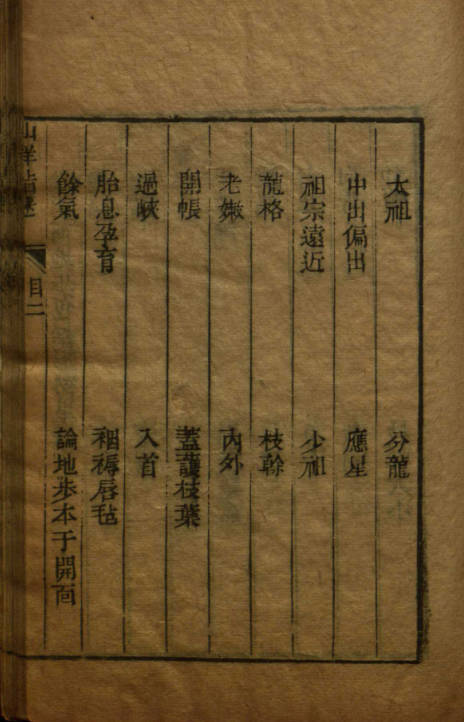 太祖　分龍
中出偏出　應星
祖宗遠近　少祖
龍格　枝幹
老嫩　內外
開帳　蓋護枝葉
過峽　入首
胎息孕育　裀褥唇毡
餘氣　論地步本于開面
山洋指迷　目二